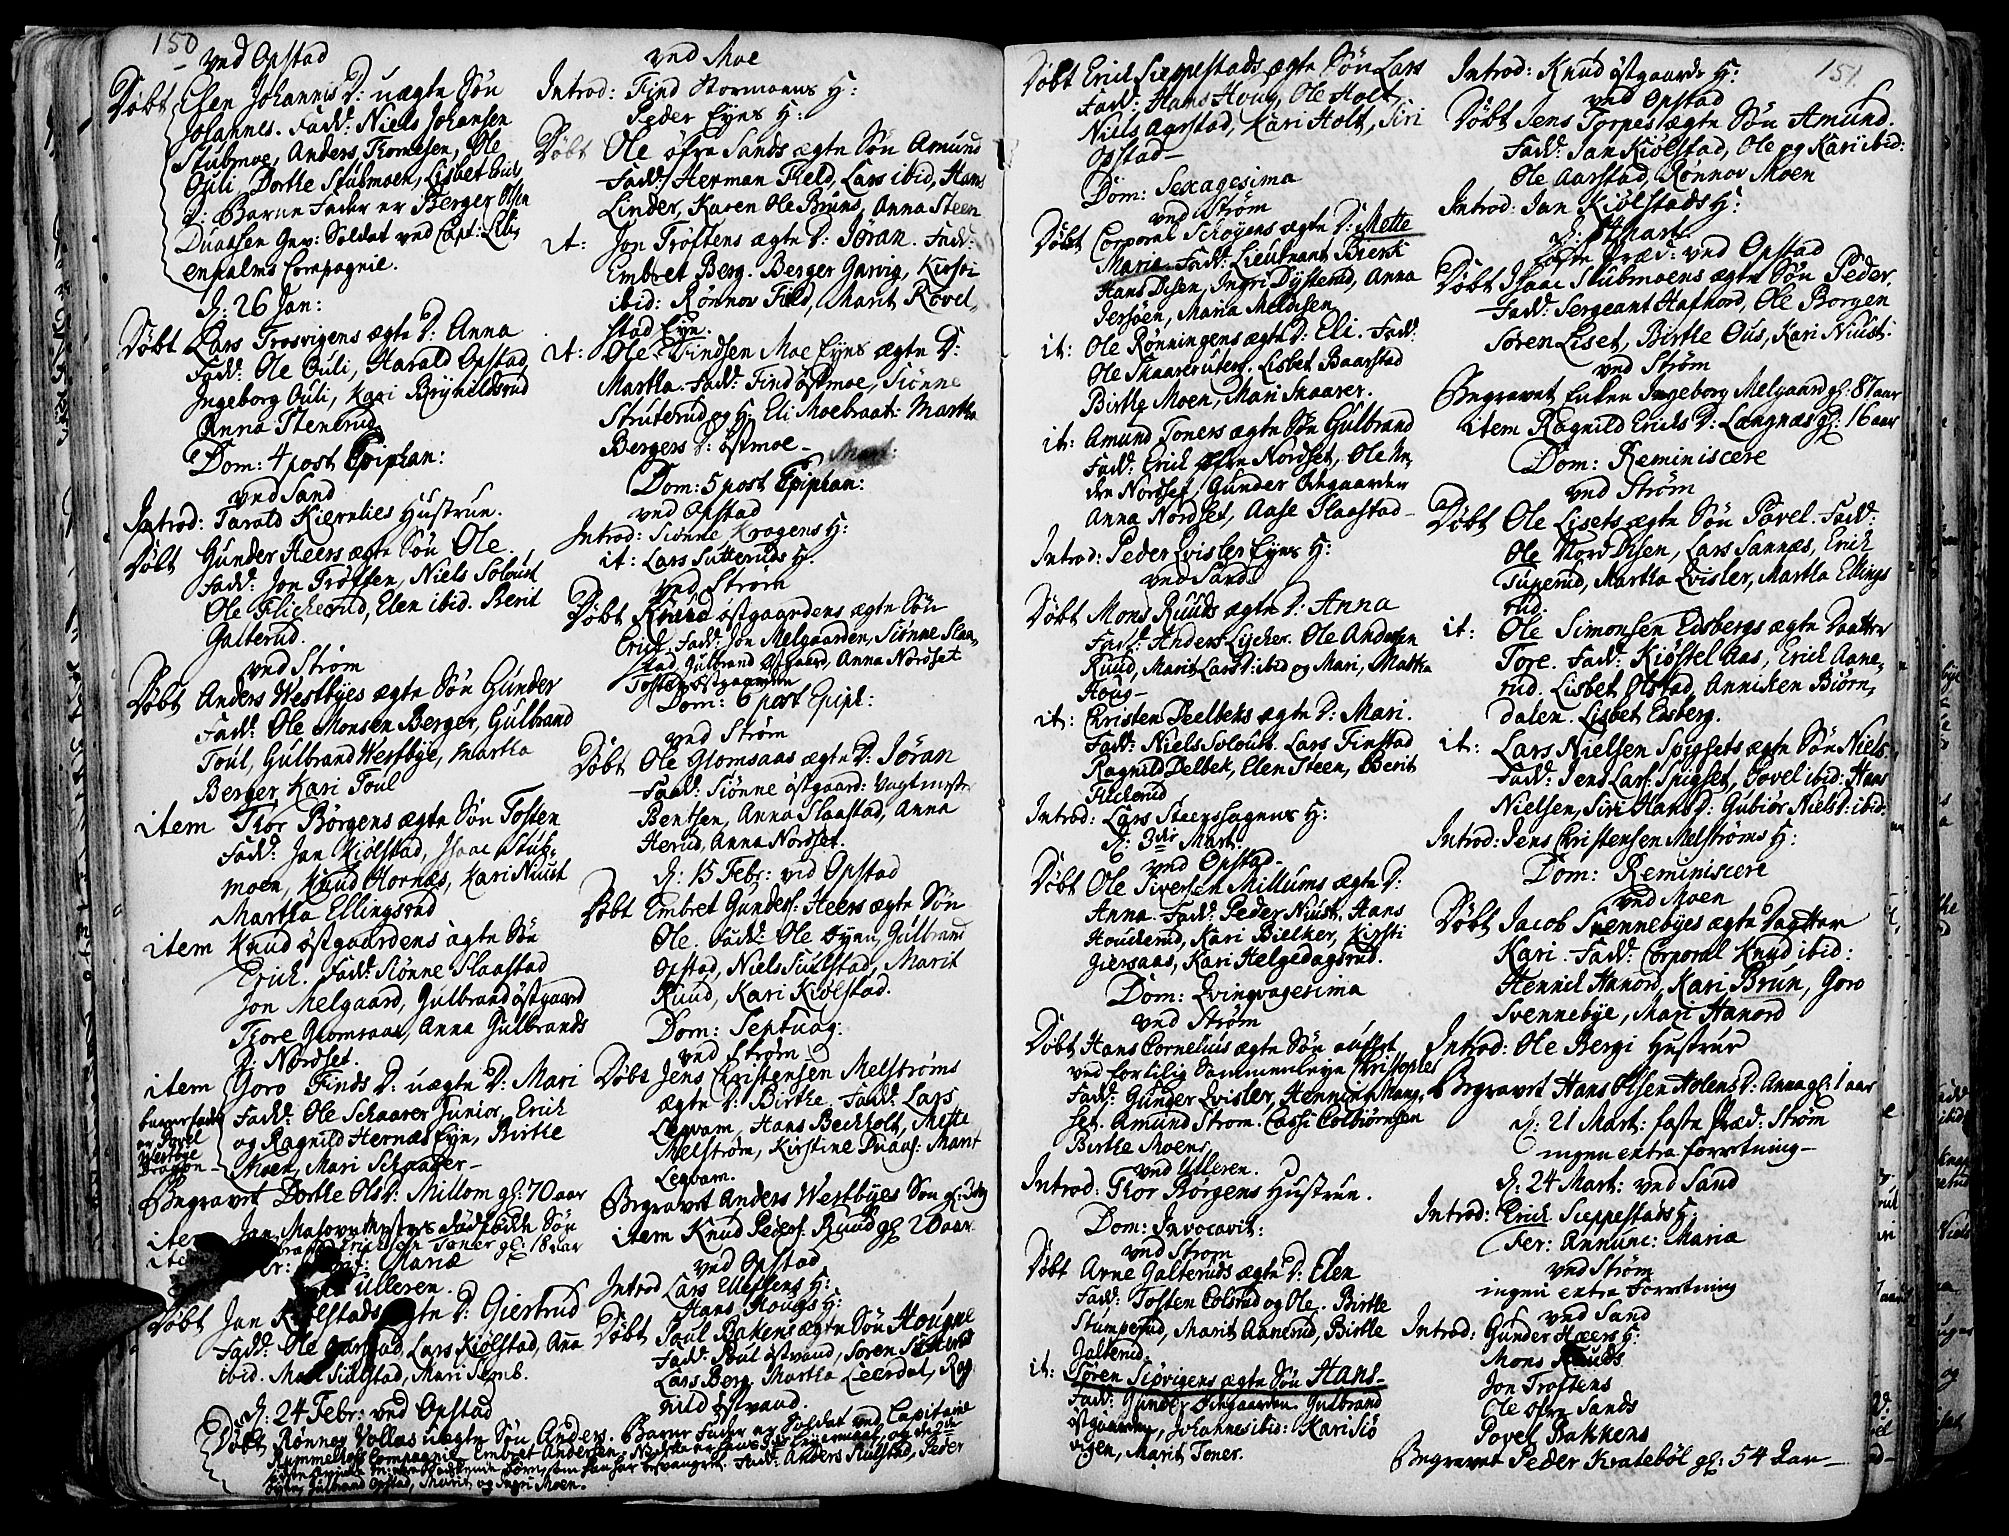 150
ved Opstad
Døbt Elen Johannis D: uægte Søn
Johannes. Fadd: Niels Johansen
Stubmoe, Anders Tomesen, Ole
Ouli, Dorthe Stubmoen, Lisbet Ouli
D: Barne Fader er Berger Olsen
Gev: Soldat ved Capt:
enhalms Compagnie.
D: 26 Jan:
Døbt Lars Trosvigens ægte D: Anna
Fadd: Ole Ouli, Harald Opstad
Ingeborg Ouli, Kari Brynildsrud
Anna Stenerud
Dom: 4 post Epiphan:
ved Sand
Introd: Tarald Kiernlies Hustrue.
Døbt Gunder Heers ægte Søn Ole.
Fadd: Jon Trøften, Niels Soloust
Ole Flickerud, Elen ibid. Berit
Galterud.
ved Strøm
Døbt Anders Westbyes ægte Søn Gunder
Fadd: Ole Monsen Berger, Gulbrand
Toul, Gulbrand Westbye, Martha
Berger Kari Toul
item Thor Børgens ægte Søn Tosten
Fadd: Jan Kiølstad, Isaac Stub-
moen, Knud Hornæs, Kari Nuust
Martha Ellingsrud
item Knud Østgaardens ægte Søn
Erich. Fadd: Siønne Slaastad
Jon Melgaard, Gulbrand Østgaard
Thore Glomsaas, Anna Gulbrands
D: Nordset.
item Goro Finds D: uægte D: Mari
Fadd: Ole Schaarer Junior, Erich
og Ragnild Hernæs Eyn, Birthe
Moen, Mari Schaarer-
barnefader
er Povel
Westbye
Dragon-
Begravet Dorthe Ols D: Millom gl: 70 aar
item Jan dødfødde Søn
Toner gl: 18 aar
Mariæ
Ulleren.
Døbt Jan Kiølstads ægte D: Giertrud
Fadd: Ole Aarstad, Lars Kiølstad, Ana
ibid. Siulstad, Mari Semb.
D: 24 Febr: ved Opstad
Døbt Rønnov Vollas uægte Søn Anders. Barne Fader er Soldat ved Capitaine
Rummelhofs Compagnie Embret Andersen.
Fadd: Anders Siulstad, Peder
Eyen, Gulbrand Opstad, Marit og Ingri Moen.
ved Moe
Introd: Find Stormoens H:
Peder Eyns H:
Døbt Ole Øfre Sands ægte Søn Amund
Fadd: Herman Field, Lars ibid, Hans
Linder, Karen Ole Bruns, Anna Steen
it: Jon Trøftens ægte D: Jøran. Fadd:
Embret Berg. Berger Garvig, Kirsti
ibid: Rønnov Field, Marit Rovel-
stad Eyn.
it: Ole Findsen Moe Eyns ægte D:
Martha. Fadd: Find Østmoe, Siønne
Struterud og H: Eli Moebraat: Martha
Bergers D: Østmoe-
Dom: 5 post Epiphan:
ved Opstad
Introd: Siønne Krogens H:
it: Lars Sutteruds H:
ved Strøm
Døbt Knud Østgaardens ægte Søn
Erich. Fadd: Jon Melgaarden, Siønne Slaa-
stad, Gulbrand Østgaard, Anna Nordset
Tosten Østgaarden
Dom: 6 post Epiph:
ved Strøm
Døbt Ole Glomsaas ægte D: Jøran
Fadd: Siønne Østgaard: Vagtmestr
Bentsen, Anna Slaastad, Anna
Herud, Anna Nordset.
D: 15 Febr: ved Opstad
Døbt Embret Gunders: Heers ægte Søn
Ole. Fadd: Ole Eyen, Gulbrand
Opstad, Niels Siulstad, Marit
Ruud, Kari Kiølstad.
Dom: Septuag:
ved Strøm
Døbt Jens Christensen Melstrøms
ægte D: Birthe. Fadd: Lars
Legvam, Hans Beckholt, Mette
Melstrøm, Kirstine Duaas: Marit
Legvam.
Begravet Anders Westbyes Søn
item Knud Peders: Ruud gl: 20 aar.
ved Opstad
Introd: Lars Ellefsens H:
Hans Hougs H:
Døbt Poul Bakens ægte Søn Hougne
Fadd: Poul Østvand, Søren
Lars Berg, Martha Leerdal, Rag
nild Østvand.
151.
Døbt Erich Sieppestads ægte Søn Lars
Fadd: Hans Houg, Ole Holt,
Niels Agrstad, Kari Holt, Siri
Opstad-
Dom: Sexagesima
ved Strøm
Døbt Corporal Schøyens ægte D: Mette
Maria. Fadd: Lieutnant Bienk
Hans Disen, Ingri Dysterud, Anna
Jersøen, Maria Meldisen.
it: Ole Rønningens ægte D: Eli. Fadd:
Ole Skaareruters. Lisbet Baarstad
Birthe Moen, Mari Skaarer.
it: Amund Toners ægte Søn Gulbrand
Fadd: Erich Øfre Nordset, Ole Ne-
dre Nordset, Gunder Ødegaarden
Anna Nordset, Aase Slaastad-
Introd: Peder Qvisler Eyns H:
ved Sand
Døbt Mons Ruuds ægte D: Anna
Fadd: Anders Lycker. Ole Andersen
Ruud, Marit Lars D: ibid og Mari, Martha
Houg-
it: Christen Deelbeks ægte D: Mari.
Fadd: Niels Soloust. Lars Finstad
Ragnild Delbek, Elen Steen, Berit
Flickerud
Introd: Lars Steenshagens H:
D: 3die Mart:
ved Opstad-
Døbt Ole Siversen Millums ægte D:
Anna. Fadd: Peder Nuust, Hans
Houckerud, Kari Bielker, Kirsti
Giersaas, Kari Helgedagsrud.
Dom: Qvinqvagesima
ved Strøm
Døbt Hans Cornelius ægte Søn auflet
ved fortilig Sammenleve Christopher
Fadd: Gunder Qvisler, Henning Mang-
set. Amund Strøm. Cassi Colbiørnsen
Birthe Moens
ved Ulleren.
Introd: Thor Børgens Hustrue.
Dom: Invocavit:
ved Strøm
Døbt Arne Galteruds ægte D: Elen
Fadd: Tosten Colsrud og Ole. Birthe
Stumperud, Marit Aanerud, Birthe
Galterud.
it: Søren Siøvigens ægte Søn Hans-
Fadd: Gunder Ødegaarden. Gulbrand
Østgaarden, Johannes ibid: Kari Siø
vigen, Marit Toner.
Introd: Knud Østgaards H:
ved Opstad
Døbt Jens Torpes ægte Søn Amund.
Fadd: Jan Kiølstad, Ole og Kari ibid:
Ole Aarstad, Rønnov Moen
Introd: Jan Kiølstads H:
D: 14 Mart.
faste Præd: ved Opstad
Døbt Isaac Stubmoens ægte Søn Peder,
Fadd: Sergeant Hafnord, Ole Borgen
Søren Liset, Birthe Ous, Kari Nuust:
ved Strøm
Begravet Enken Ingeborg Melgaard gl: 87 aar
item Ragnild Erichs D: Længnæs gl: 16 aar
Dom: Reminiscere
ved Strøm
Døbt Ole Lisets ægte Søn Povel. Fadd:
Ole Nord Disen, Lars Sannæs, Erich
Tuperud, Martha Qvisler, Martha Ellings
rud.
it: Ole Simonsen Edsbergs ægte Daatter
Tore. Fadd: Kiøstel Aas, Erich Aane-
rud. Lisbet Olstad, Annichen Biørn,
dalen. Lisbet Edsberg.
it: Lars Nielsen Spigsets ægte Søn Niels
Fadd: Jens Lars: Spigset, Povel ibid: Hans
Nielsen, Siri Hans D: Gubiør Niels D: ibid:
Introd: Jens Christensen Melstrøms H:
Dom: Reminiscere
ved Moen
Døbt Jacob Svennebyes ægte Daatter
Kari. Fadd: Corporal Knud ibid:
Hennich Hanord, Kari Brun, Goro
Svennebye, Mari Hanord
Introd: Ole Bergi Hustrue
Begravet Hans Olsen Holens D: Anna gl: 1 aar
D: 21 Mart: faste Præd: Strøm
ingen extra forretning-
D: 24 Mart: ved Sand
Introd: Erich Sieppestads H:
Fer: Annunc: Mariæ
ved Strøm
ingen extra Forretning
ved Sand
Introd: Gunder Hæers H:
Mons Ruuds
Jon Trøftens
Ole Øfre Sands
Povel Bakkens
Begravet Peder Kratebøl gl: 54 Aar-